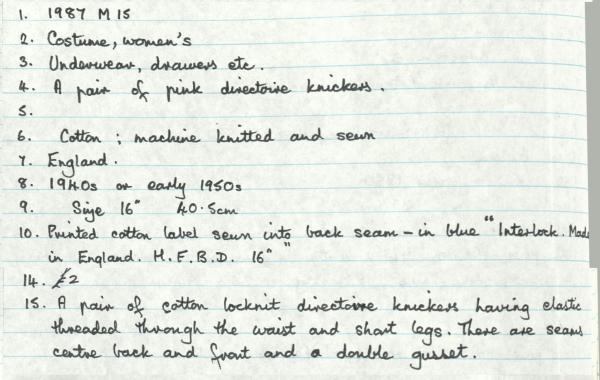 1. 1987 M 15
2. Costume, women's
3. Underwear, drawers etc.
4. A pair of pink directoire knickers.
5.
6. Cotton ; machine knitted and sewn
7. England.
8. 1940s or early 1950s
9. Size 16" 40.5cm
10. Printed cotton label sewn into back seam - in blue "Interlock. Made
in England. H.F.B.D. 16""
14. £2
15. A pair of cotton locknit directoire knickers having elastic
threaded through the waist and short legs. There are seams
centre back and front and a double gusset.